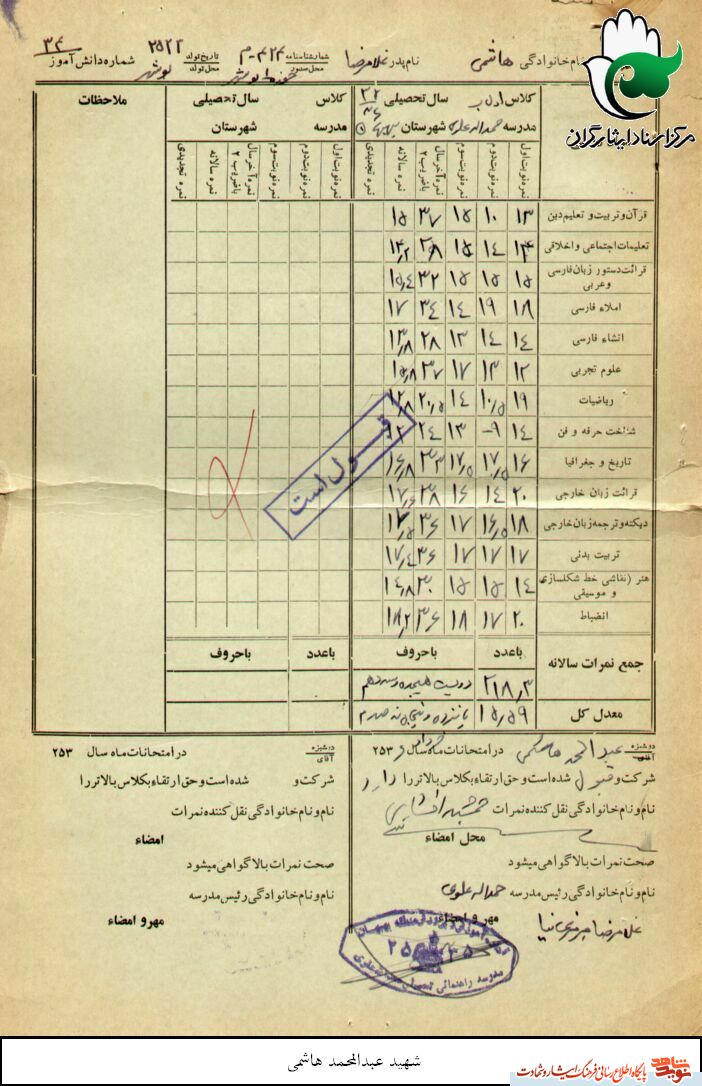 نام خانوادگی هاشمی نام پدر غلامرضا شماره شناسنامه ۴۲۴-م تاریخ تولد ۲۵۲۲ شماره دانش آموز ۳۴
محل صدور محل تولد بوشهر
مرکز اسناد ایثارگران
کلاس اول ب سال تحصیلی ۳۵/۳۶ کلاس سال تحصیلی ملاحظات
مدرسه حمداله علوی شهرستان مدرسه شهرستان
نمره نوبت اول نمره نوبت دوم نمره نوبت سوم نمره آخر سال باضریب ۲ نمره سالانه نمره تجدیدی نمره نوبت اول نمره نوبت دوم نمره نوبت سوم نمره آخر سال باضریب ۲ نمره سالانه نمره تجدیدی
قرآن و تربیت و تعلیم دین ۱۳ ۱۰ ۱۵ ۳۷ ۱۵
تعلیمات اجتماعی و اخلاقی ۱۴ ۱۵ ۲۸ ۱۴٫۲
قرائت دستور زبان فارسی و عربی ۱۵ ۱۵ ۱۵ ۳۲ ۱۵٫۴
املاء فارسی ۱۸ ۱۹ ۱۴ ۳۴ ۱۷
انشاء فارسی ۱۴ ۱۴ ۱۳ ۲۸ ۱۳٫۸
علوم تجربی ۱۲ ۱۳ ۱۷ ۳۷ ۱۵٫۸
ریاضیات ۱۹ ۱۰٫۵ ۱۴ ۲۰٫۵ ۱۲٫۸
شناخت حرفه و فن ۱۴ ۹- ۱۳ ۲۴ ۱۲
تاریخ و جغرافیا ۱۶ ۱۷٫۵ ۱۷٫۵ ۳۳ ۱۶٫۸
قرائت زبان خارجی ۲۰ ۱۴ ۱۶ ۳۸ ۱۷٫۶
دیکته و ترجمه زبان خارجی ۱۸ ۱۶٫۵ ۱۷ ۳۶ ۱۷٫۵
تربیت بدنی ۱۷ ۱۷ ۱۷ ۳۶ ۱۷٫۴
هنر (نقاشی خط شکلسازی و موسیقی ۱۴ ۱۵ ۱۵ ۳۰ ۱۴٫۸
انضباط ۲۰ ۱۷ ۱۸ ۳۶ ۱۸٫۲
قبول است
باعدد باحروف باعدد باحروف
جمع نمرات سالانه ۲۱۸٫۳ دویست هیجده و سه دهم
معدل کل ۱۵٫۵۹ پانزده و پنجاه نه صدم
دوشیزه آقای عبدالمحمد هاشمی در امتحانات ماه خرداد سال ۲۵۳۶ دوشیزه آقای در امتحانات ماه سال ۲۵۳
شرکت و قبول شده است و حق ارتقاء بکلاس بالاتر را دارد شرکت و شده است و حق ارتقاء بکلاس بالاتر را
نام و نام خانوادگی نقل کننده نمرات جمشید نام و نام خانوادگی نقل کننده نمرات
محل امضاء امضاء
صحت نمرات بالا گواهی میشود صحت نمرات بالا گواهی میشود
نام و نام خانوادگی رئیس مدرسه حمداله علوی نام و نام خانوادگی رئیس مدرسه
مهر و امضاء مهر و امضاء
غلامرضا
۲۵۳۵
مدرسه راهنمائی تحصیلی
شهید عبدالمحمد هاشمی
نوید شاهد پایگاه اطلاع رسانی فرهنگ ایثار و شهادت